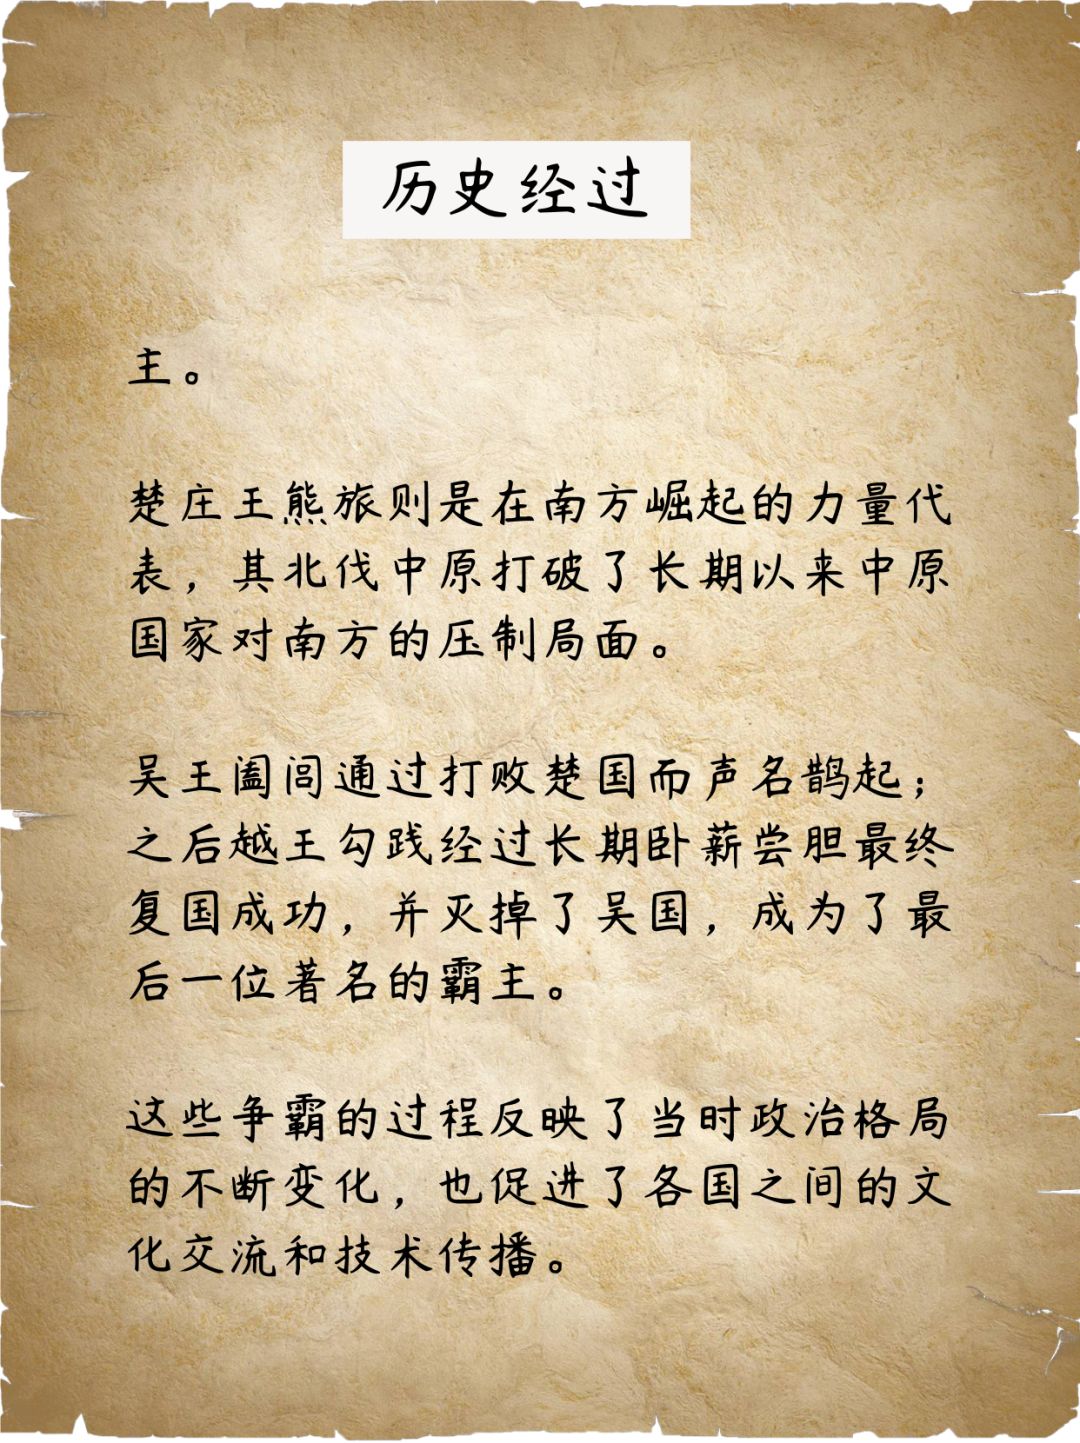 历史经过
主。
楚庄王熊旅则是在南方崛起的力量代
表，其北伐中原打破了长期以来中原
国家对南方的压制局面。
吴王阖闾通过打败楚国而声名鹊起；
之后越王勾践经过长期卧薪尝胆最终
复国成功，并灭掉了吴国，成为了最
后一位著名的霸主。
这些争霸的过程反映了当时政治格局
的不断变化，也促进了各国之间的文
化交流和技术传播。